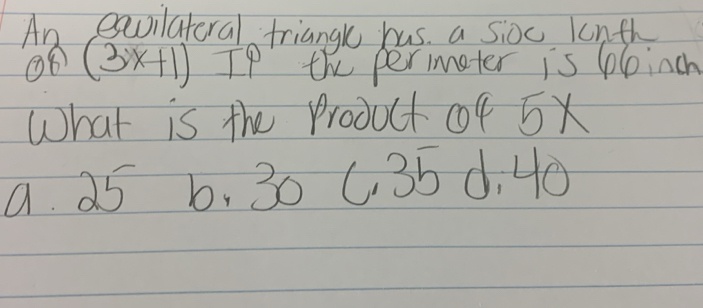 An eqwilateral triangle has. a side lenth
of (3x+1) If the perimeter is 66 inch
What is the Product of 5X
a. 25 b. 30 C. 35 d. 40